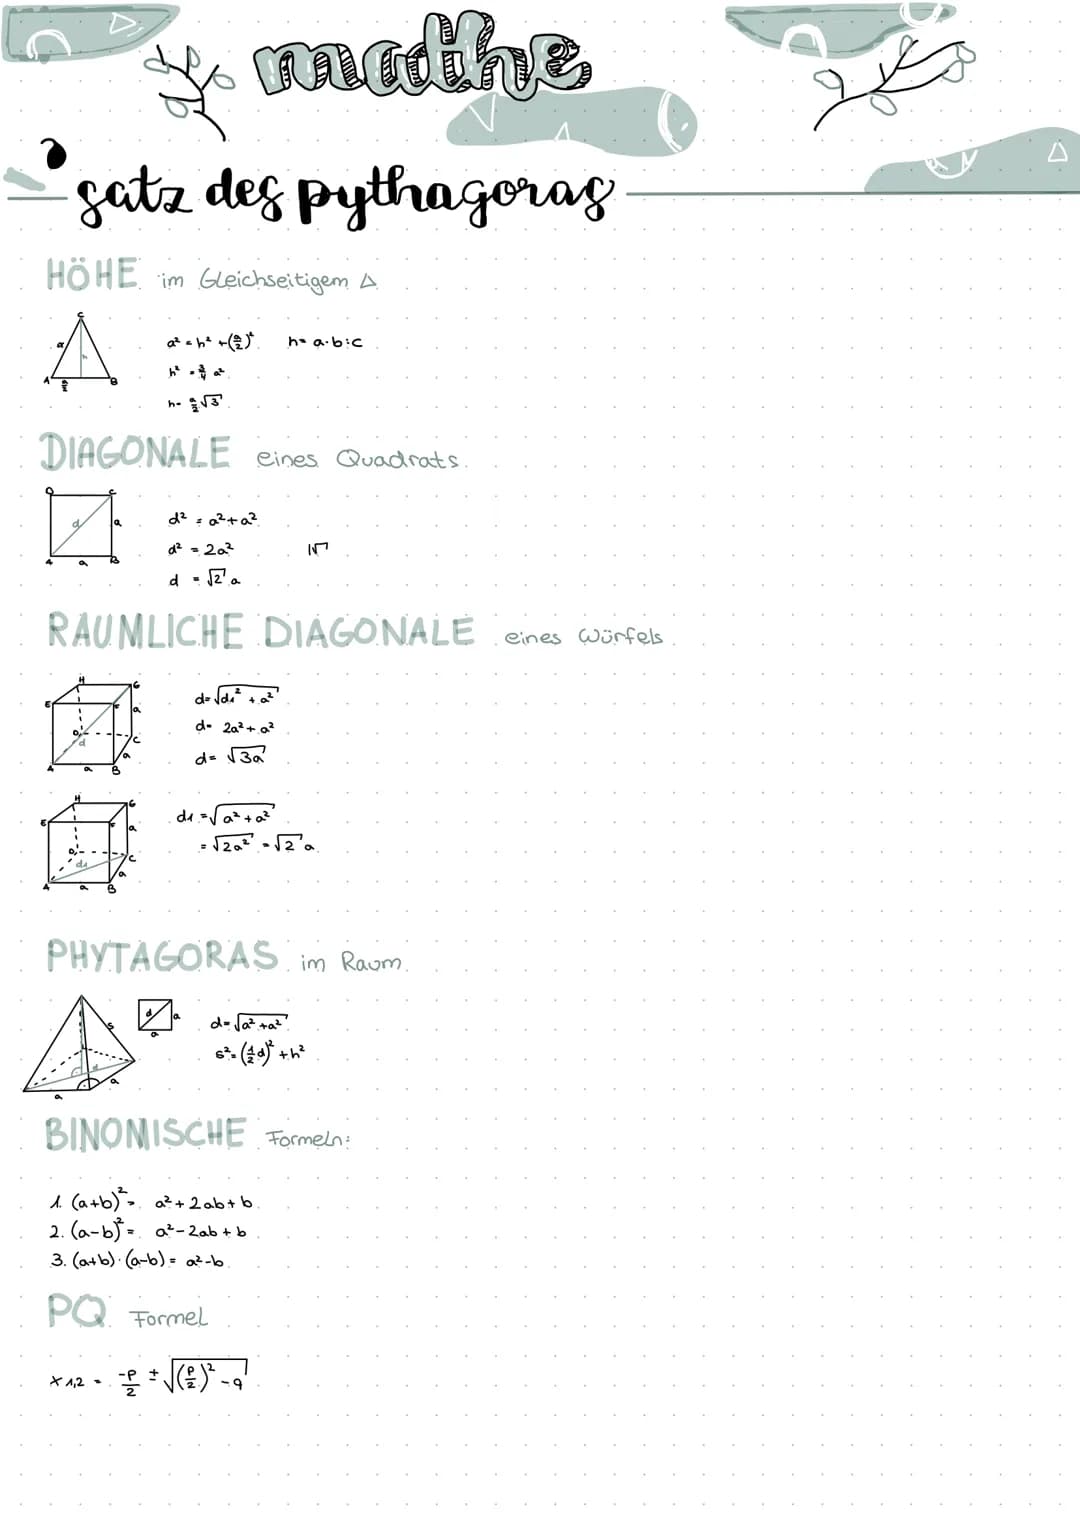 mathe
satz des pythagoras
HÖHE im Gleichseitigem Δ
C
a h
A a/2 B
a² = h² + (a/2)² h = a·b:c
h² = 3/4 a²
h = a/2 √3
DIAGONALE eines Quadrats
D C
d a
A a B
d² = a² + a²
d² = 2a² |√
d = √2 a
RÄUMLICHE DIAGONALE eines Würfels
H G
E F a
D d C
A a B a
d = √d₁² + a²
d = 2a² + a²
d = √3a
H G
E F a
D d1 C
A a B a
d1 = √a² + a²
= √2a² = √2 a
PHYTAGORAS im Raum
s d a
a
a a
d = √a² + a²
s² = (1/2 d)² + h²
BINOMISCHE Formeln:
1. (a+b)² = a² + 2ab + b
2. (a-b)² = a² - 2ab + b
3. (a+b)·(a-b) = a² - b
PQ Formel
x 1,2 = -p/2 ± √(p/2)² - q